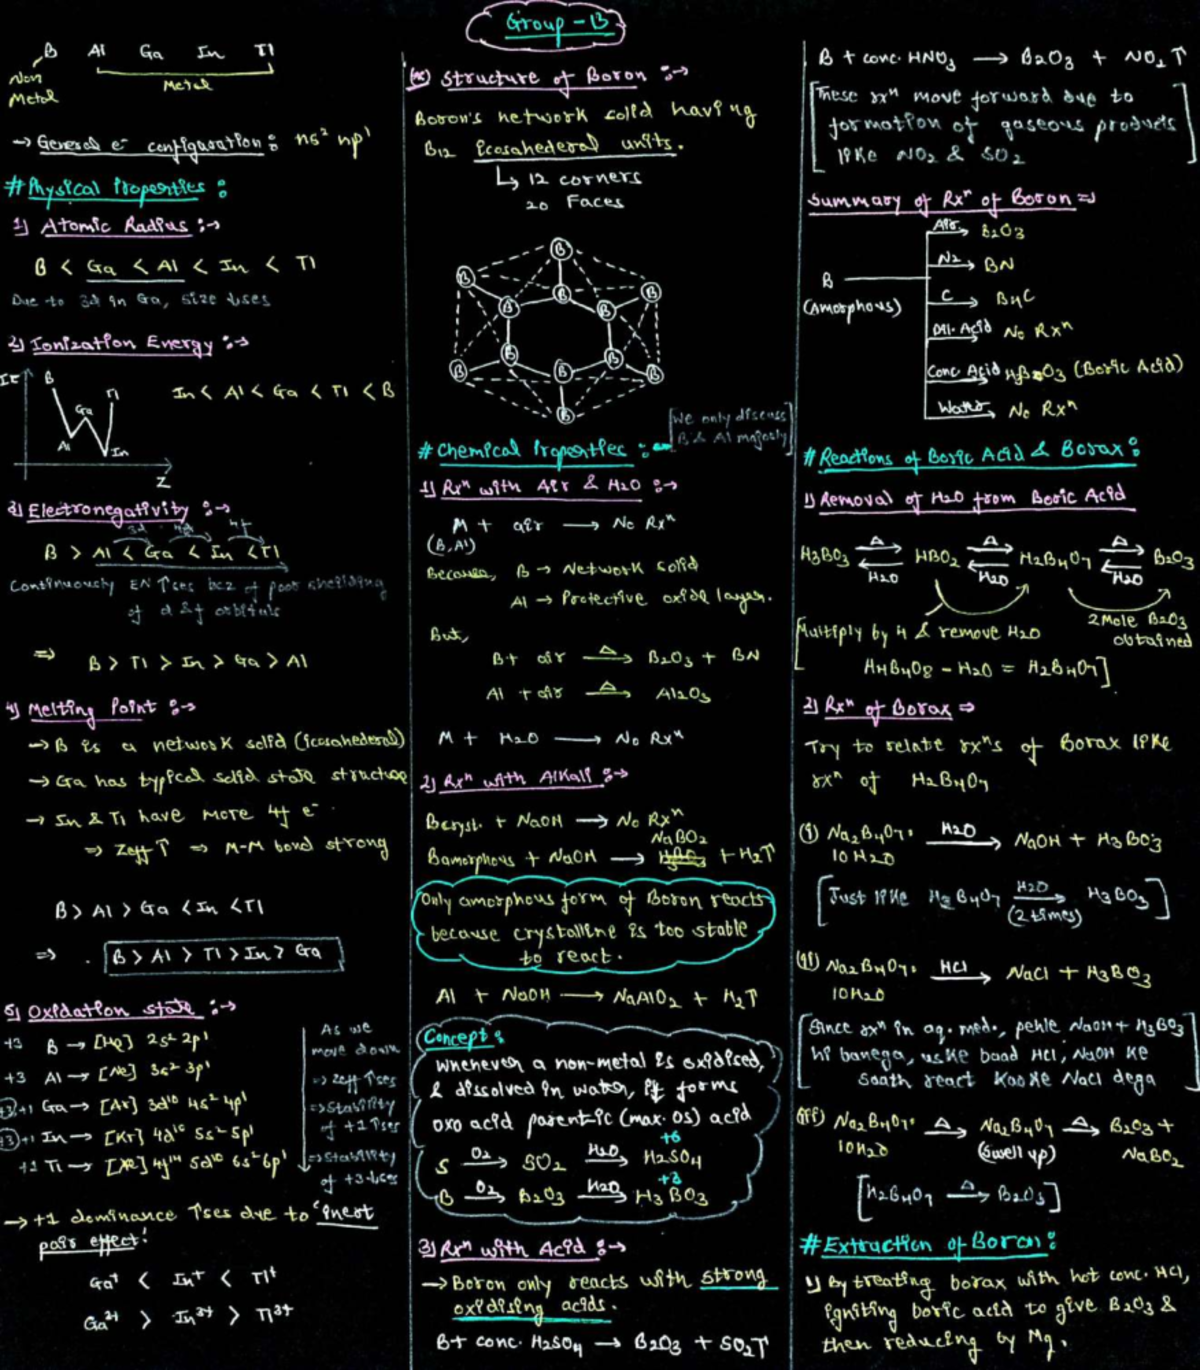 Group - 13
B Al Ga In Tl
Non Metal
Metal
→ General e⁻ configaration : ns² np¹
# Physical Properties :
1) Atomic Radius :→
B < Ga < Al < In < Tl
Due to 3d in Ga, size ↓ses
2) Ionization Energy :→
IE
B
Al
Ga
In
Tl
Z
In < Al < Ga < Tl < B
3) Electronegativity :→
3d 4d 4f
B > Al < Ga < In < Tl
Continuously EN ↑ses bcz of poor sheilding
of d & f orbitals
⇒ B > Tl > In > Ga > Al
4) Melting Point :→
→ B is a network solid (icosahederal)
→ Ga has typical solid state structure
→ In & Tl have more 4f e⁻
⇒ Zeff ↑ ⇒ M-M bond strong
B > Al > Ga < In < Tl
⇒ B > Al > Tl > In > Ga
5) Oxidation state :→
+3 B → [He] 2s² 2p¹
+3 Al → [Ne] 3s² 3p¹
+3 +1 Ga → [Ar] 3d¹⁰ 4s² 4p¹
+3 +1 In → [Kr] 4d¹⁰ 5s² 5p¹
+1 Tl → [Xe] 4f¹⁴ 5d¹⁰ 6s² 6p¹
As we
move down
⇒ Zeff ↑ses
⇒ Stability
of +1 ↑ses
⇒ Stability
of +3 ↓ses
→ +1 dominance ↑ses due to 'inert
pair effect!
Ga⁺ < In⁺ < Tl⁺
Ga³⁺ > In³⁺ > Tl³⁺
Structure of Boron :→
Boron's network solid having
B₁₂ icosahederal units.
↳ 12 corners
20 Faces
B
B
B
B
B
B
B
B
B
B
B
B
[We only discuss
B & Al majorly]
# Chemical Properties :
1) Rxⁿ with Air & H₂O :→
M + air → No Rxⁿ
(B, Al)
Because, B → Network solid
Al → Protective oxide layer.
But,
B + air Δ→ B₂O₃ + BN
Al + air Δ→ Al₂O₃
M + H₂O → No Rxⁿ
2) Rxⁿ with Alkali :→
Bcryst. + NaOH → No Rxⁿ
Bamorphous + NaOH → NaBO₂ + H₂↑
Only amorphous form of Boron reacts
because crystalline is too stable
to react.
Al + NaOH → NaAlO₂ + H₂↑
Concept :
Whenever a non-metal is oxidised,
& dissolved in water, it forms
oxo acid parentric (max. OS) acid
S O₂→ SO₂ H₂O→ +6 H₂SO₄
B O₂→ B₂O₃ H₂O→ +3 H₃BO₃
3) Rxⁿ with Acid :→
→ Boron only reacts with strong
oxidising acids.
B + conc. H₂SO₄ → B₂O₃ + SO₂↑
B + conc. HNO₃ → B₂O₃ + NO₂↑
[These rxⁿ move forward due to
formation of gaseous products
like NO₂ & SO₂]
Summary of Rxⁿ of Boron ⇒
B
(Amorphous)
Air→ B₂O₃
N₂→ BN
C→ B₄C
Dil. Acid→ No Rxⁿ
Conc. Acid→ H₃BO₃ (Boric Acid)
Water→ No Rxⁿ
# Reactions of Boric Acid & Borax :
1) Removal of H₂O from Boric Acid
H₃BO₃ Δ⇌H₂O HBO₂ Δ⇌H₂O H₂B₄O₇ Δ⇌H₂O B₂O₃
[Multiply by 4 & remove H₂O
H₄B₄O₈ - H₂O = H₂B₄O₇]
2 Mole B₂O₃
obtained
2) Rxⁿ of Borax ⇒
Try to relate rxⁿs of Borax like
rxⁿ of H₂B₄O₇
(i) Na₂B₄O₇. 10H₂O H₂O→ NaOH + H₃BO₃
[Just like H₂B₄O₇ H₂O→ (2 times) H₃BO₃]
(ii) Na₂B₄O₇. 10H₂O HCl→ NaCl + H₃BO₃
[Since rxⁿ in aq. med., pehle NaOH + H₃BO₃
hi banega, uske baad HCl, NaOH ke
saath react karke NaCl dega]
(iii) Na₂B₄O₇. 10H₂O Δ→ Na₂B₄O₇ (Swell up) Δ→ B₂O₃ + NaBO₂
[H₂B₄O₇ Δ→ B₂O₃]
# Extraction of Boron :
1) By treating borax with hot conc. HCl,
igniting boric acid to give B₂O₃ &
then reducing by Mg.